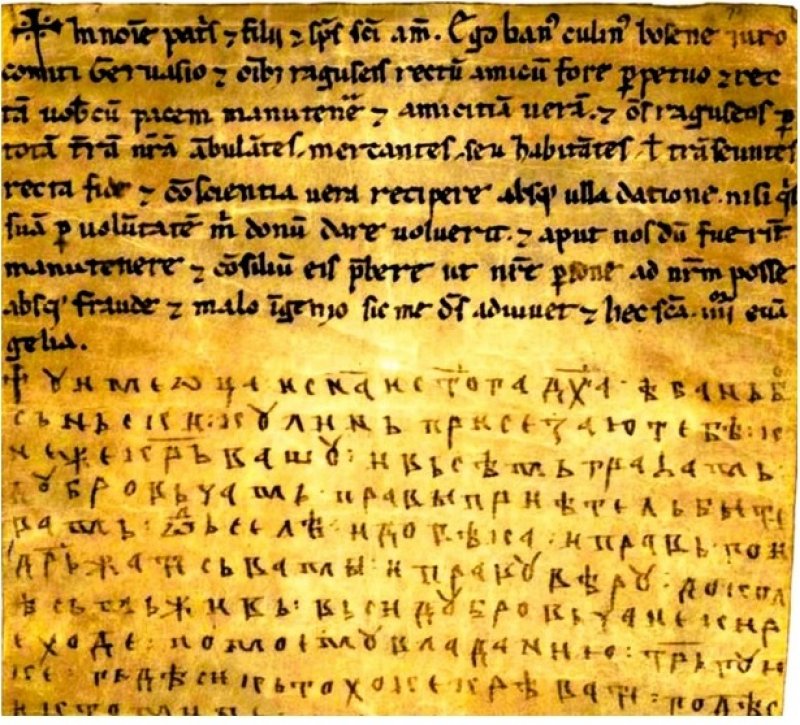 ✠ In noīe pat̄s ⁊ filij ⁊ sp̄s sc̄i am̄. Ego banꝰ culinꝰ bosene iuro
comiti Gervasio ⁊ oīb; raguseis rectū amicū fore ꝑpetuo ⁊ rec
tā uob̄cū pacem manutenere ⁊ amicitiā uerā. ⁊ om̄s raguseos ꝑ
totā t̄rā nr̄ā ābulātes. mercantes. seu habitātes ł trāseuntes
recta fide ⁊ cōscientia uera recipere absqꝫ ulla datione. nisi q̄s
suā ꝑ uolūtatē m̄ donū dare uoluerit. ⁊ aput nos dū fuerīt
manutenere ⁊ cōsiliū eis p̄bere ut nr̄e ꝑsone ad nr̄m posse
absqꝫ fraude ⁊ malo īgenio sic me d̄s adiuuet ⁊ hec sc̄a .iiiior. euā
gelia.
☩ ꙋ име ѡца· и сн҃а и ст҃ога дх҃а· ѣ бань б
сьньски: кꙋлинь присеꙁаю тебѣ: к
неже крьвашꙋ: и вьсѣмь грађамь·
дꙋбровьчамь· правы приѣтель бити
вамь: ѿ селѣ· и довѣка· и правь гои
дрьжати сь вами· и правꙋ вѣрꙋ· докол
ѣ сьмь живь: вьси дꙋбровьчане кир
е ходе· по моемꙋ владанию: трьгꙋю
ке: гьдѣ си кьто хоке крѣвати· годѣ с